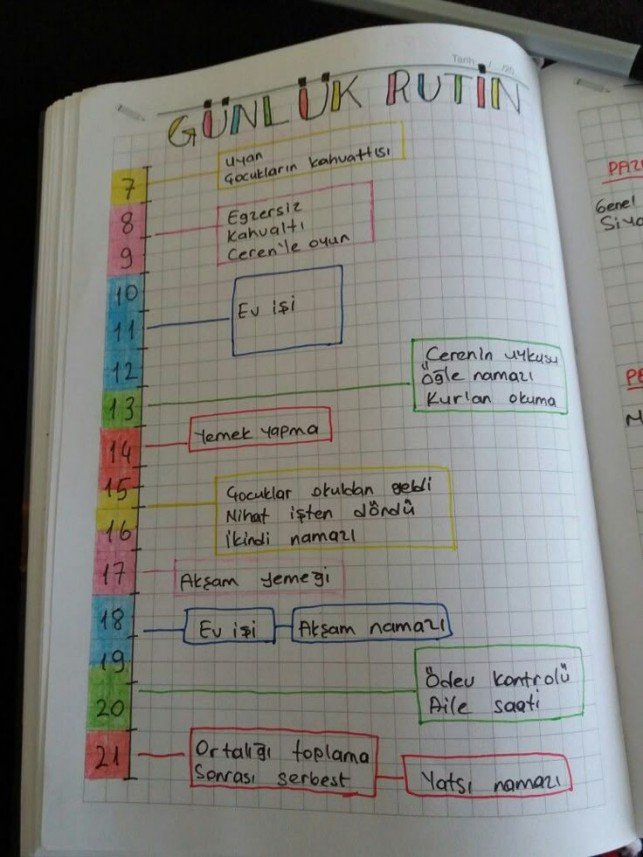 Tarih / /20
GÜNLÜK RUTİN
7
Uyan
Çocukların kahvaltısı
8
9
Egzersiz
Kahvaltı
Ceren'le oyun
10
11
Ev işi
12
13
Cerenin uykusu
Öğle namazı
Kur'an okuma
14
Yemek yapma
15
16
Çocuklar okuldan geldi
Nihat işten döndü
İkindi namazı
17
Akşam yemeği
18
Ev işi
Akşam namazı
19
20
Ödev kontrolü
Aile saati
21
Ortalığı toplama
Sonrası serbest
Yatsı namazı
Genel